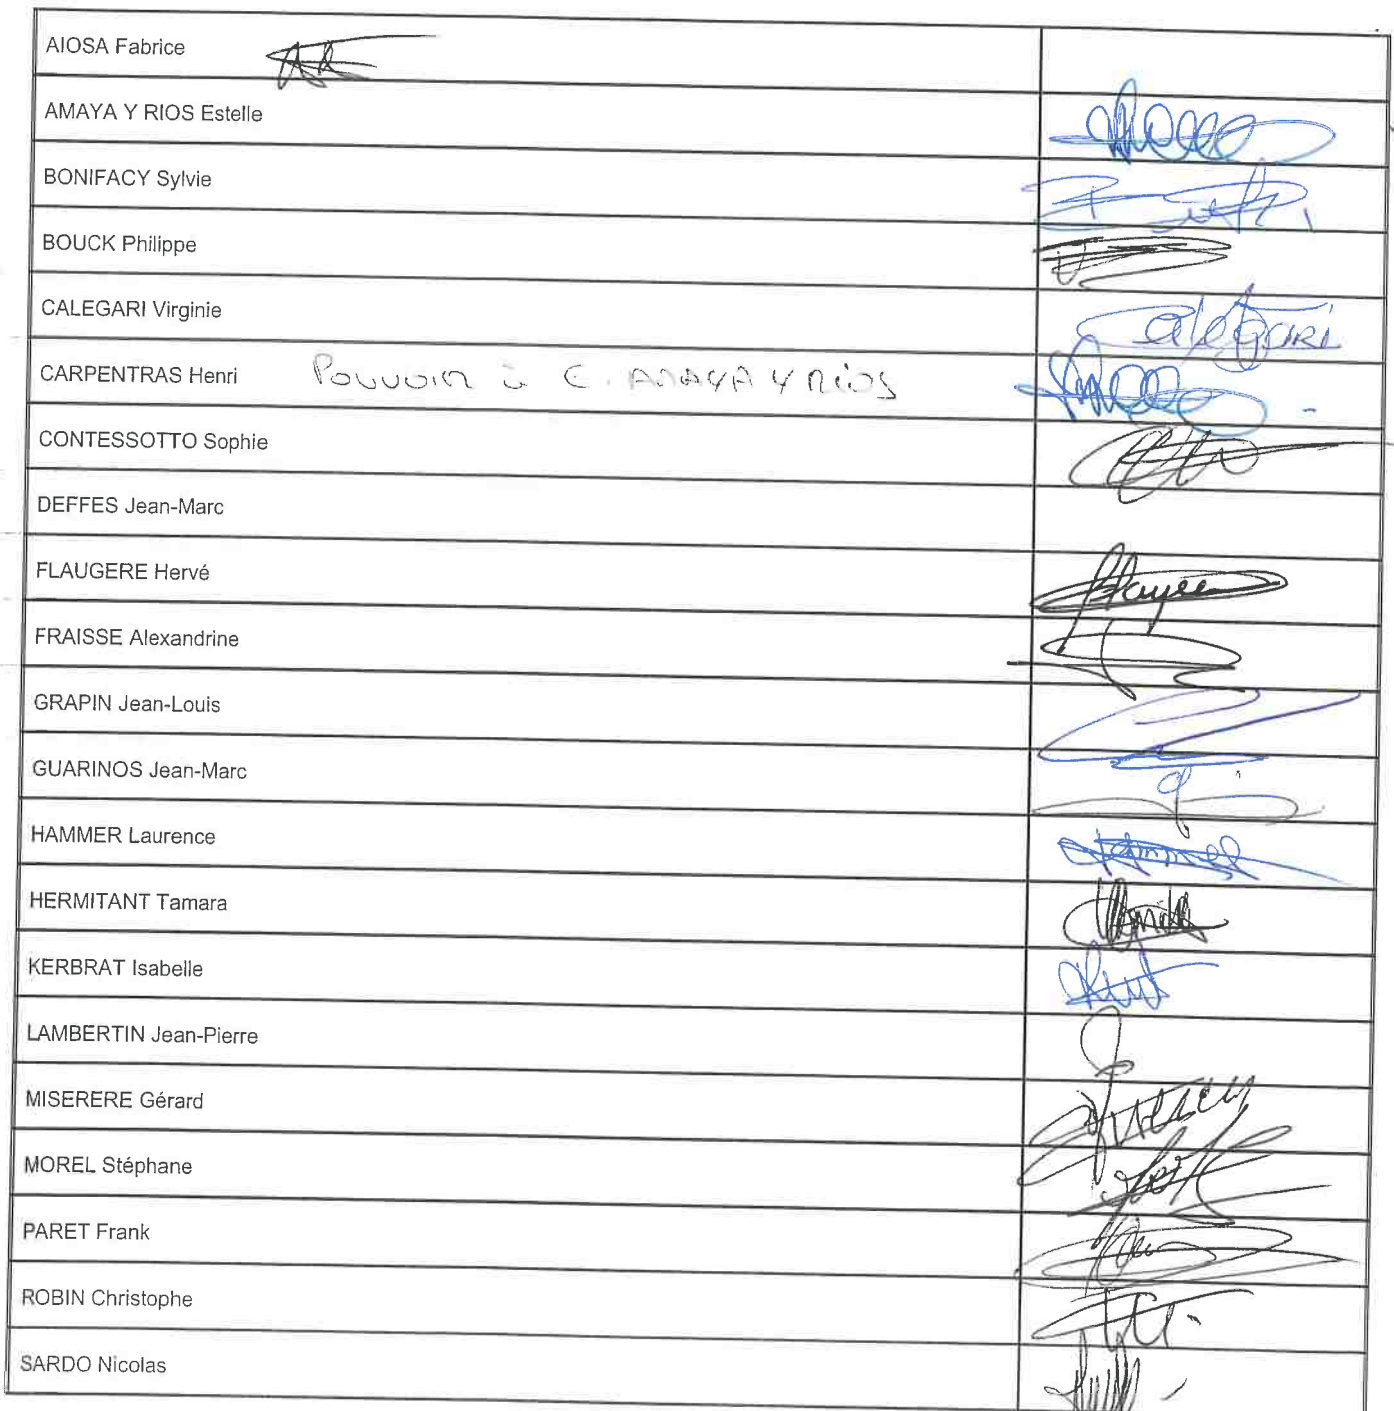 AIOSA Fabrice
AMAYA Y RIOS Estelle
BONIFACY Sylvie
BOUCK Philippe
CALEGARI Virginie
Calegari
CARPENTRAS Henri Pouvoir à E. AMAYA Y RIOS
CONTESSOTTO Sophie
DEFFES Jean-Marc
FLAUGERE Hervé
FRAISSE Alexandrine
GRAPIN Jean-Louis
GUARINOS Jean-Marc
HAMMER Laurence
HERMITANT Tamara
KERBRAT Isabelle
LAMBERTIN Jean-Pierre
MISERERE Gérard
MOREL Stéphane
PARET Frank
ROBIN Christophe
SARDO Nicolas